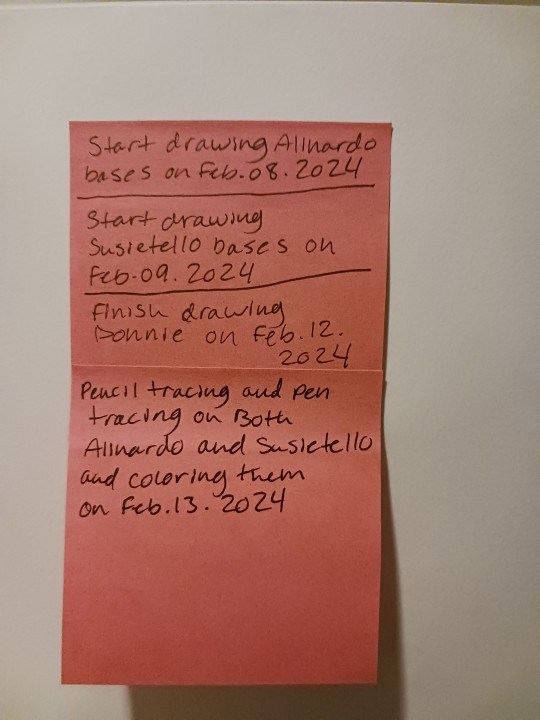 Start drawing Alinardo
bases on Feb.08.2024
Start drawing
Susietello bases on
Feb.09.2024
Finish drawing
Donnie on Feb.12.
2024
Pencil tracing and pen
tracing on Both
Alinardo and Susietello
and coloring them
on Feb.13.2024